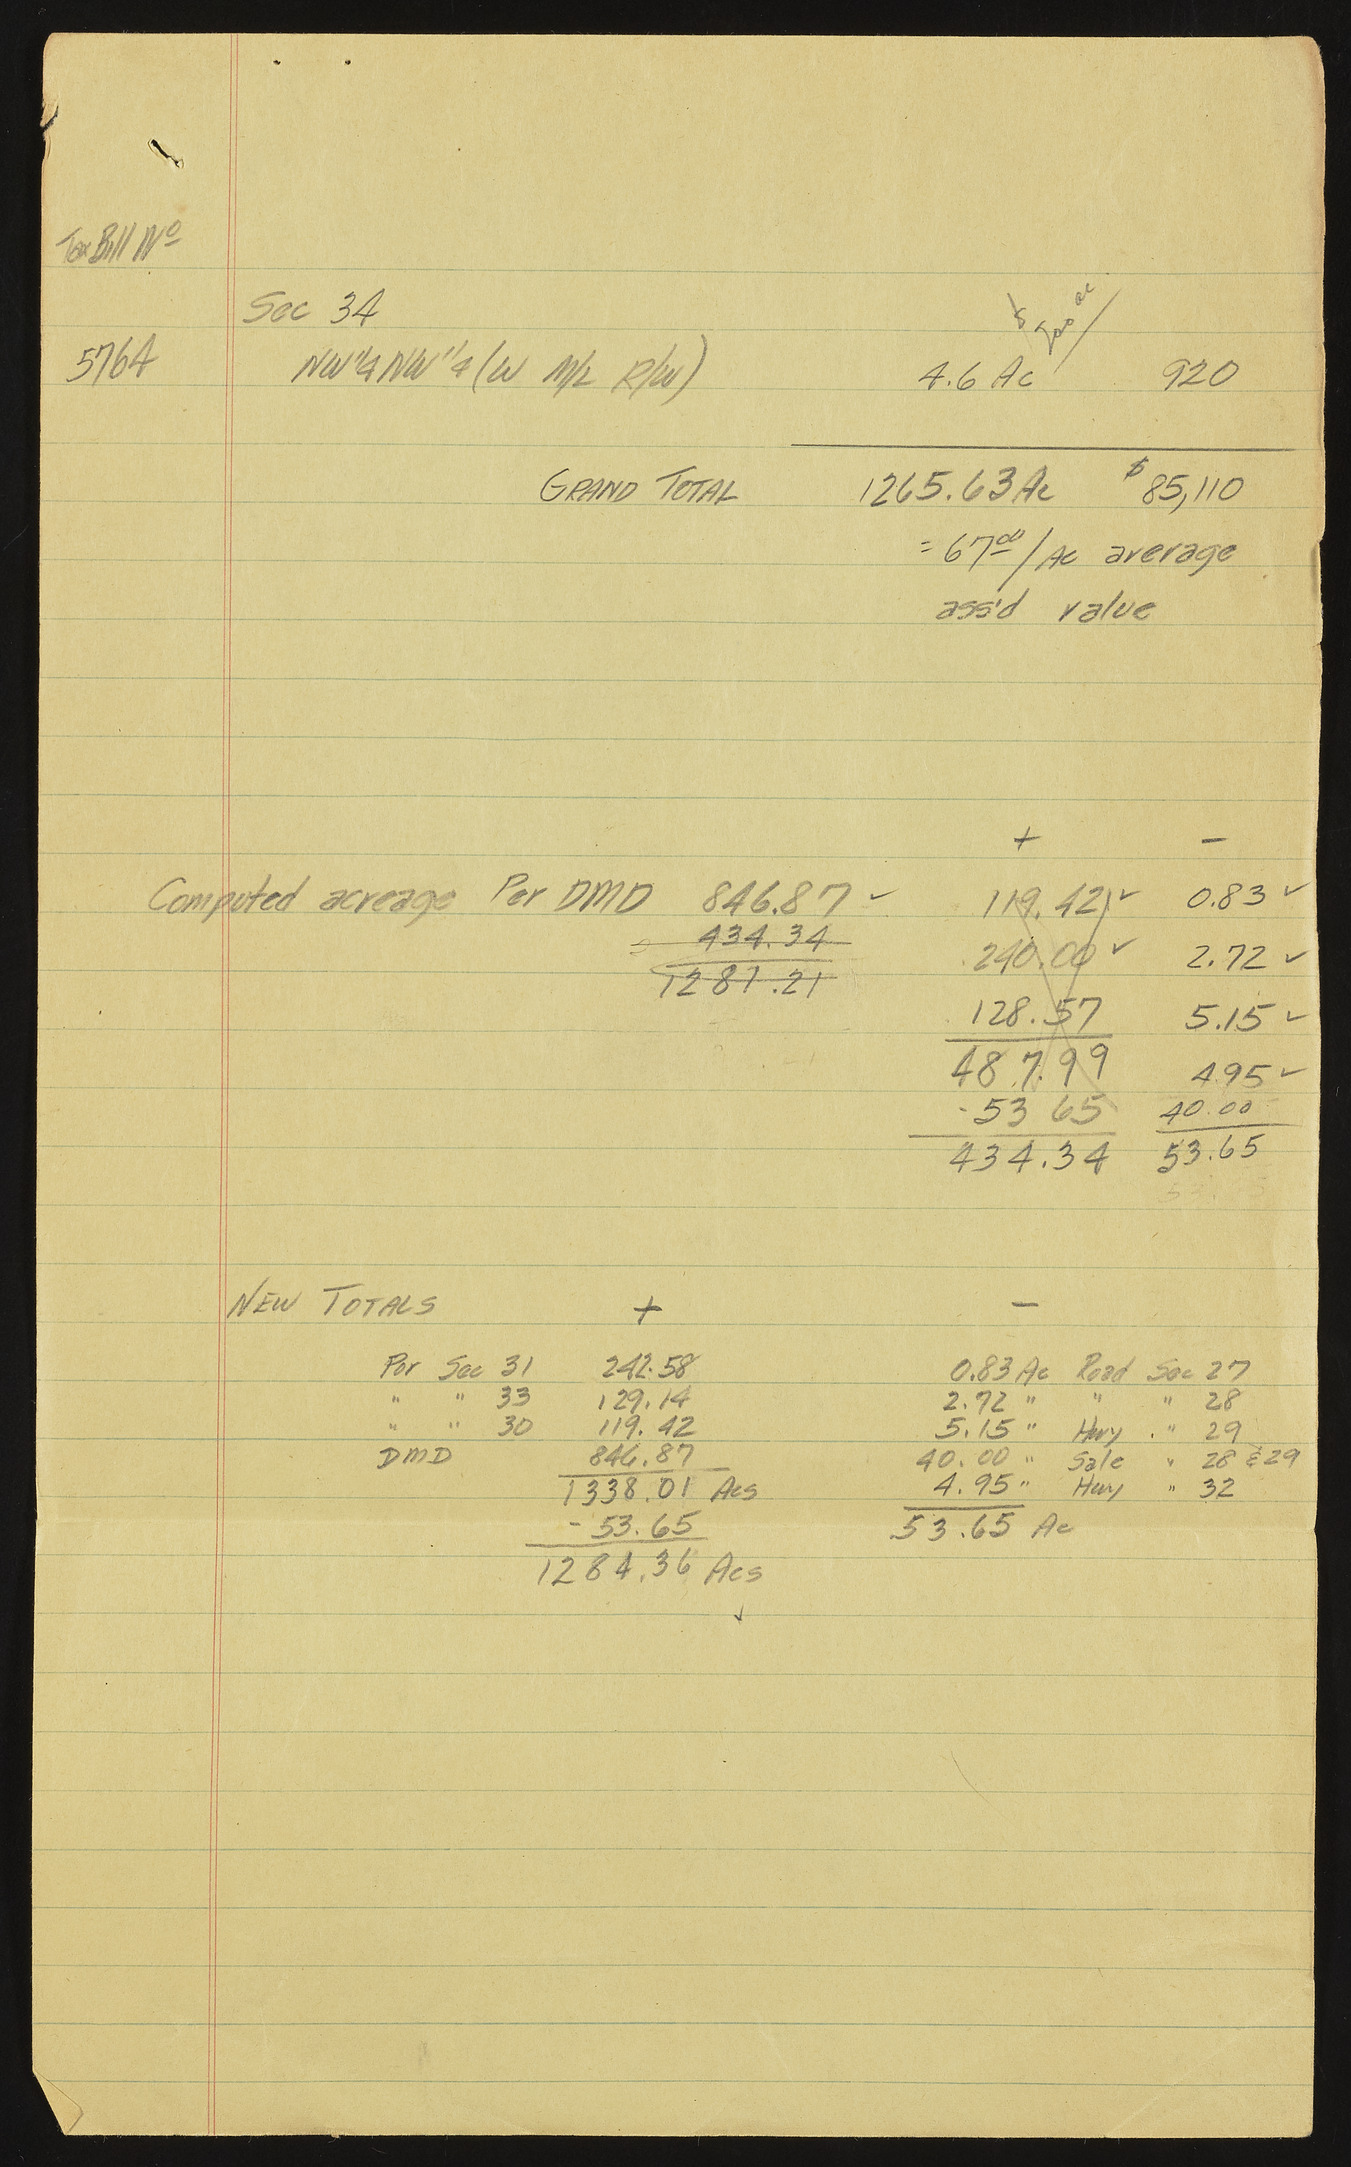 Tax Bill Nº
Sec 34
$200 ac/
5764 NW¼ NW¼ (W M/L R/W) 4.6 Ac 920
GRAND TOTAL 1265.63 Ac $85,110
= 67ºº/Ac average
ass'd value
+ −
Computed acreage Per DMD 846.87 ✓ 119.42 ✓ 0.83 ✓
434.34 240.00 ✓ 2.72 ✓
1281.21 128.57 5.15 ✓
487.99 4.95 ✓
-53 65 40.00
434.34 53.65
NEW TOTALS + −
Por Sec 31 242.58 0.83 Ac Road Sec 27
" " 33 129.14 2.72 " " " 28
" " 30 119.42 5.15 " Hwy " 29
DMD 846.87 40.00 " Sale " 28 & 29
1338.01 Acs 4.95 " Hwy " 32
- 53.65 53.65 Ac
1284.36 Acs
✓